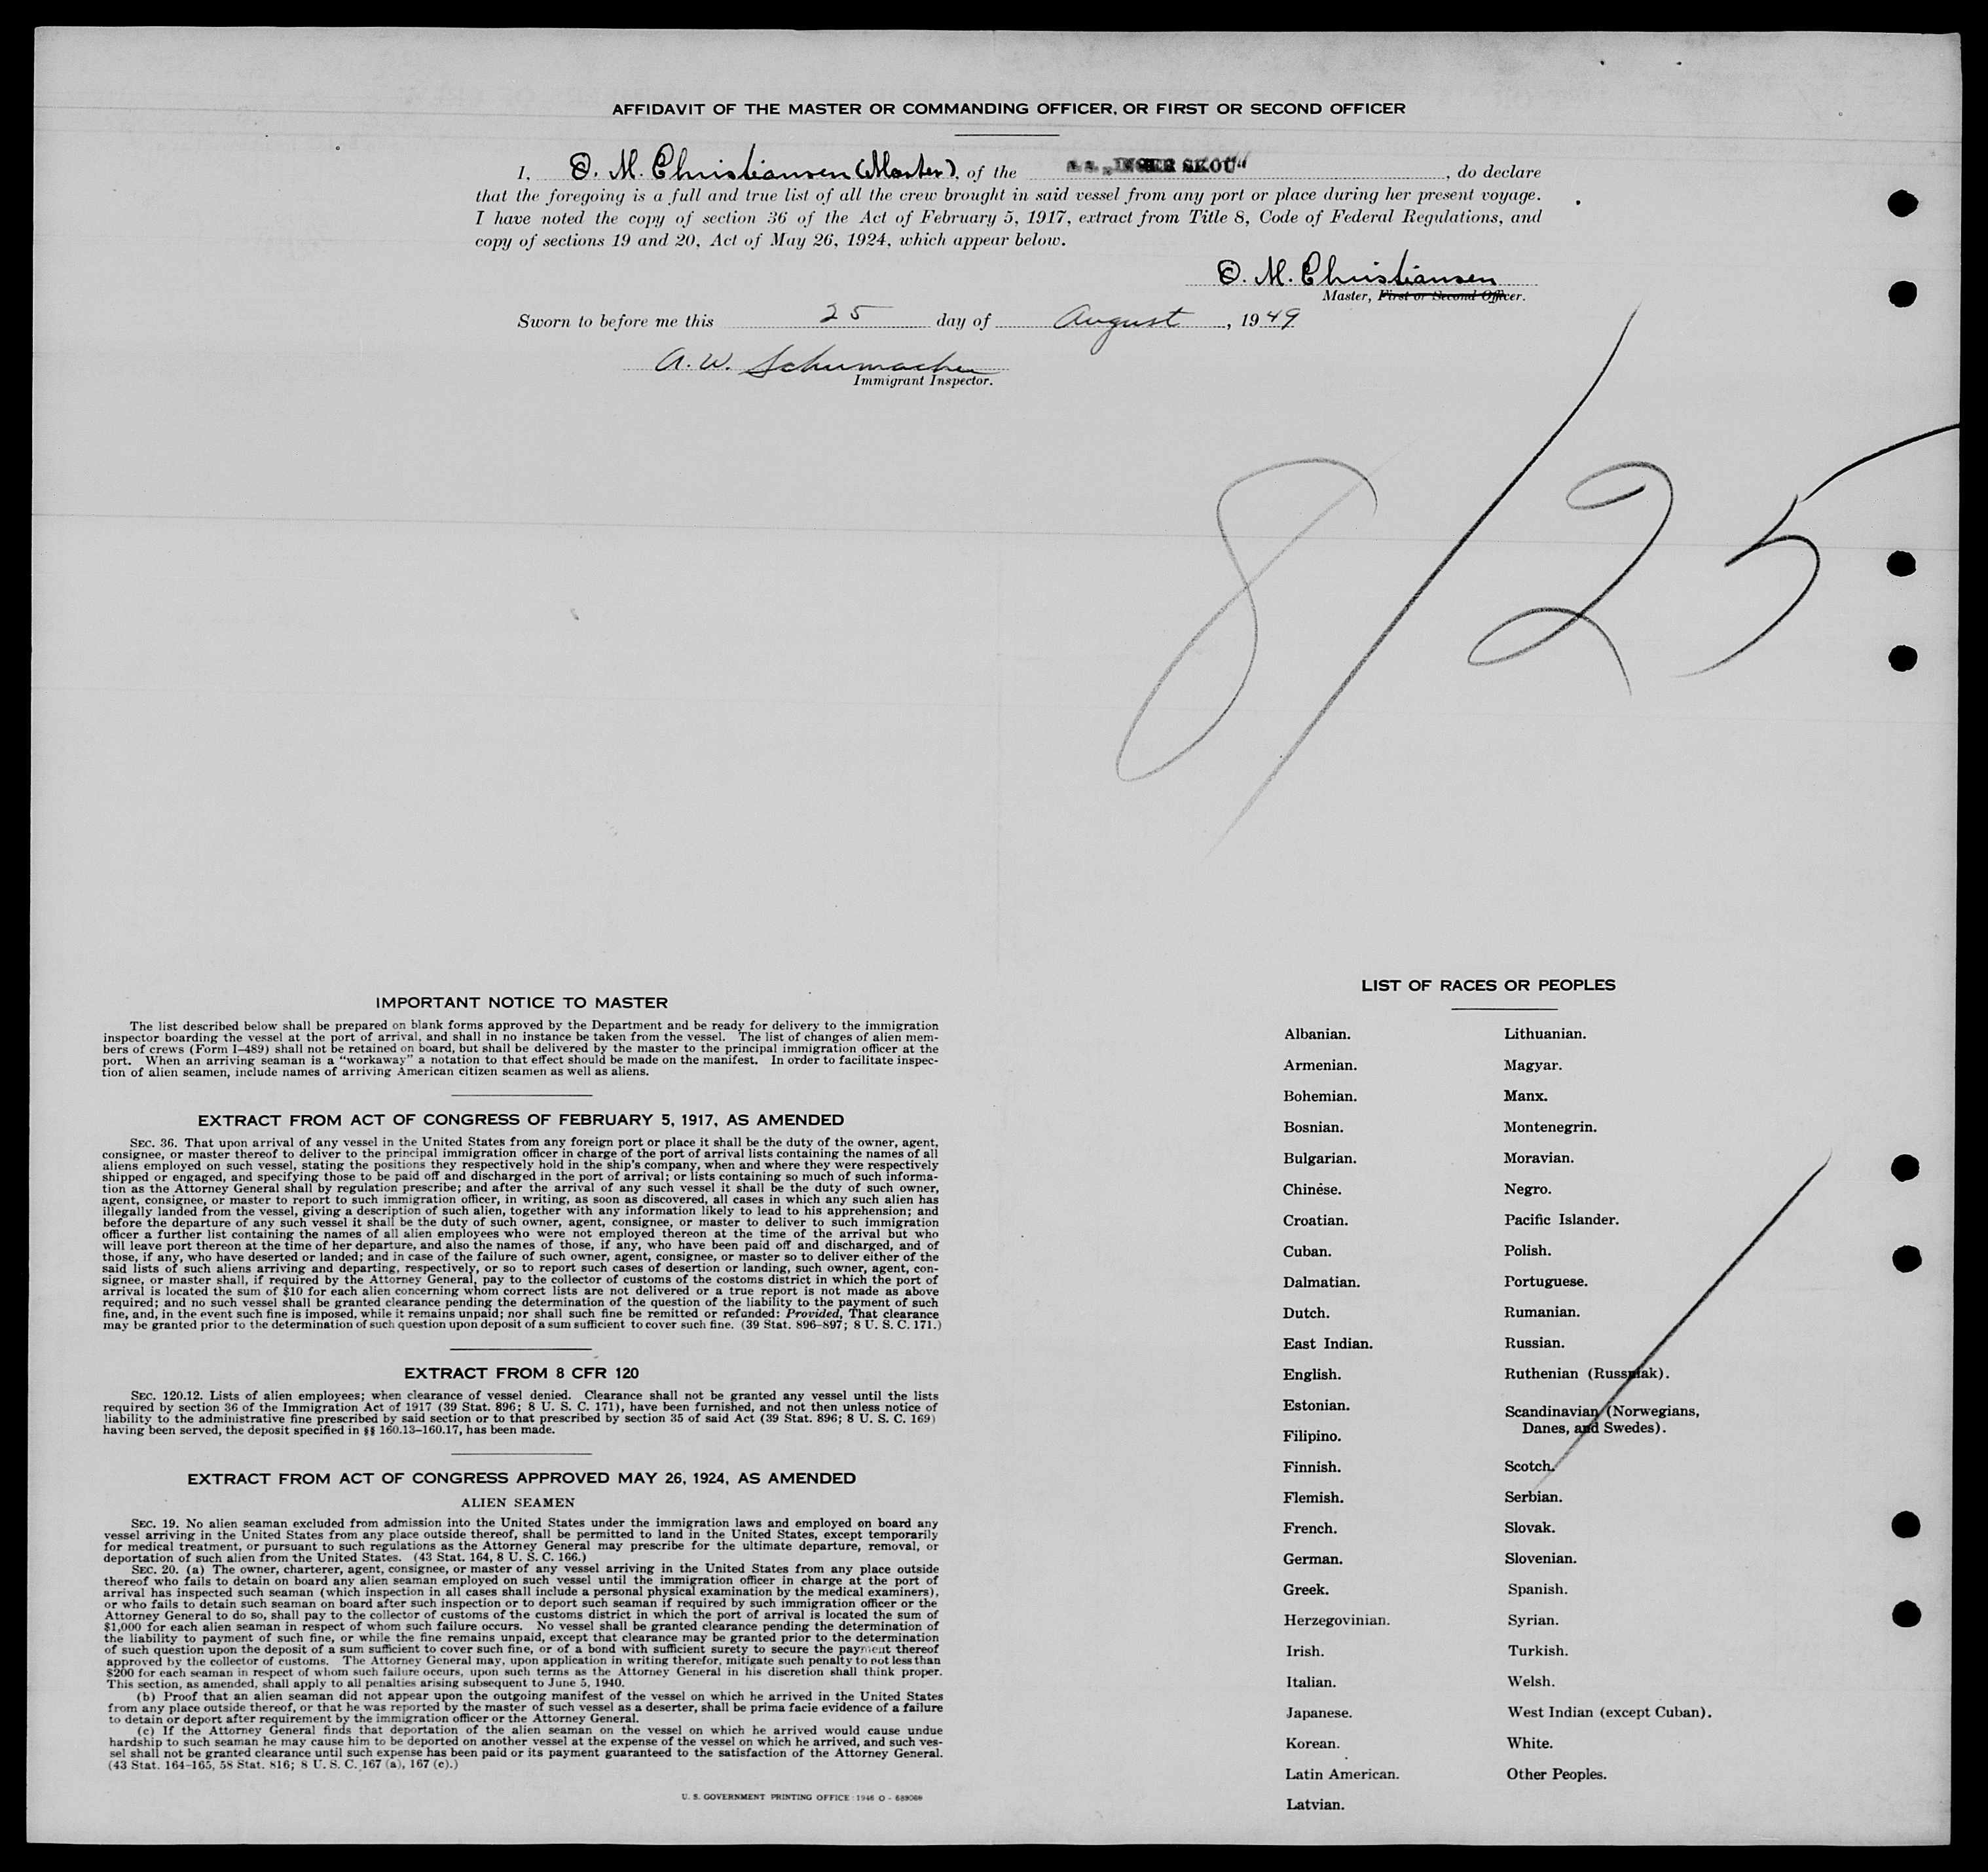 AFFIDAVIT OF THE MASTER OR COMMANDING OFFICER, OR FIRST OR SECOND OFFICER
I, O. M. Christiansen (Master), of the S. S. „INGER SKOU“, do declare
that the foregoing is a full and true list of all the crew brought in said vessel from any port or place during her present voyage.
I have noted the copy of section 36 of the Act of February 5, 1917, extract from Title 8, Code of Federal Regulations, and
copy of sections 19 and 20, Act of May 26, 1924, which appear below.
O. M. Christiansen
Master, First or Second Officer.
Sworn to before me this 25 day of August, 1949
A. W. Schumacher
Immigrant Inspector.
8/25
IMPORTANT NOTICE TO MASTER
The list described below shall be prepared on blank forms approved by the Department and be ready for delivery to the immigration
inspector boarding the vessel at the port of arrival, and shall in no instance be taken from the vessel. The list of changes of alien mem-
bers of crews (Form I-489) shall not be retained on board, but shall be delivered by the master to the principal immigration officer at the
port. When an arriving seaman is a “workaway” a notation to that effect should be made on the manifest. In order to facilitate inspec-
tion of alien seamen, include names of arriving American citizen seamen as well as aliens.
EXTRACT FROM ACT OF CONGRESS OF FEBRUARY 5, 1917, AS AMENDED
SEC. 36. That upon arrival of any vessel in the United States from any foreign port or place it shall be the duty of the owner, agent,
consignee, or master thereof to deliver to the principal immigration officer in charge of the port of arrival lists containing the names of all
aliens employed on such vessel, stating the positions they respectively hold in the ship's company, when and where they were respectively
shipped or engaged, and specifying those to be paid off and discharged in the port of arrival; or lists containing so much of such informa-
tion as the Attorney General shall by regulation prescribe; and after the arrival of any such vessel it shall be the duty of such owner,
agent, consignee, or master to report to such immigration officer, in writing, as soon as discovered, all cases in which any such alien has
illegally landed from the vessel, giving a description of such alien, together with any information likely to lead to his apprehension; and
before the departure of any such vessel it shall be the duty of such owner, agent, consignee, or master to deliver to such immigration
officer a further list containing the names of all alien employees who were not employed thereon at the time of the arrival but who
will leave port thereon at the time of her departure, and also the names of those, if any, who have been paid off and discharged, and of
those, if any, who have deserted or landed; and in case of the failure of such owner, agent, consignee, or master so to deliver either of the
said lists of such aliens arriving and departing, respectively, or so to report such cases of desertion or landing, such owner, agent, con-
signee, or master shall, if required by the Attorney General, pay to the collector of customs of the costoms district in which the port of
arrival is located the sum of $10 for each alien concerning whom correct lists are not delivered or a true report is not made as above
required; and no such vessel shall be granted clearance pending the determination of the question of the liability to the payment of such
fine, and, in the event such fine is imposed, while it remains unpaid; nor shall such fine be remitted or refunded: Provided, That clearance
may be granted prior to the determination of such question upon deposit of a sum sufficient to cover such fine. (39 Stat. 896-897; 8 U. S. C. 171.)
EXTRACT FROM 8 CFR 120
SEC. 120.12. Lists of alien employees; when clearance of vessel denied. Clearance shall not be granted any vessel until the lists
required by section 36 of the Immigration Act of 1917 (39 Stat. 896; 8 U. S. C. 171), have been furnished, and not then unless notice of
liability to the administrative fine prescribed by said section or to that prescribed by section 35 of said Act (39 Stat. 896; 8 U. S. C. 169)
having been served, the deposit specified in §§ 160.13-160.17, has been made.
EXTRACT FROM ACT OF CONGRESS APPROVED MAY 26, 1924, AS AMENDED
ALIEN SEAMEN
SEC. 19. No alien seaman excluded from admission into the United States under the immigration laws and employed on board any
vessel arriving in the United States from any place outside thereof, shall be permitted to land in the United States, except temporarily
for medical treatment, or pursuant to such regulations as the Attorney General may prescribe for the ultimate departure, removal, or
deportation of such alien from the United States. (43 Stat. 164, 8 U. S. C. 166.)
SEC. 20. (a) The owner, charterer, agent, consignee, or master of any vessel arriving in the United States from any place outside
thereof who fails to detain on board any alien seaman employed on such vessel until the immigration officer in charge at the port of
arrival has inspected such seaman (which inspection in all cases shall include a personal physical examination by the medical examiners),
or who fails to detain such seaman on board after such inspection or to deport such seaman if required by such immigration officer or the
Attorney General to do so, shall pay to the collector of customs of the customs district in which the port of arrival is located the sum of
$1,000 for each alien seaman in respect of whom such failure occurs. No vessel shall be granted clearance pending the determination of
the liability to payment of such fine, or while the fine remains unpaid, except that clearance may be granted prior to the determination
of such question upon the deposit of a sum sufficient to cover such fine, or of a bond with sufficient surety to secure the payment thereof
approved by the collector of customs. The Attorney General may, upon application in writing therefor, mitigate such penalty to not less than
$200 for each seaman in respect of whom such failure occurs, upon such terms as the Attorney General in his discretion shall think proper.
This section, as amended, shall apply to all penalties arising subsequent to June 5, 1940.
(b) Proof that an alien seaman did not appear upon the outgoing manifest of the vessel on which he arrived in the United States
from any place outside thereof, or that he was reported by the master of such vessel as a deserter, shall be prima facie evidence of a failure
to detain or deport after requirement by the immigration officer or the Attorney General.
(c) If the Attorney General finds that deportation of the alien seaman on the vessel on which he arrived would cause undue
hardship to such seaman he may cause him to be deported on another vessel at the expense of the vessel on which he arrived, and such ves-
sel shall not be granted clearance until such expense has been paid or its payment guaranteed to the satisfaction of the Attorney General.
(43 Stat. 164-165, 58 Stat. 816; 8 U. S. C. 167 (a), 167 (c).)
U. S. GOVERNMENT PRINTING OFFICE : 1946 O - 689068
LIST OF RACES OR PEOPLES
Albanian.
Armenian.
Bohemian.
Bosnian.
Bulgarian.
Chinese.
Croatian.
Cuban.
Dalmatian.
Dutch.
East Indian.
English.
Estonian.
Filipino.
Finnish.
Flemish.
French.
German.
Greek.
Herzegovinian.
Irish.
Italian.
Japanese.
Korean.
Latin American.
Latvian.
Lithuanian.
Magyar.
Manx.
Montenegrin.
Moravian.
Negro.
Pacific Islander.
Polish.
Portuguese.
Rumanian.
Russian.
Ruthenian (Russniak).
Scandinavian (Norwegians,
Danes, and Swedes).
Scotch.
Serbian.
Slovak.
Slovenian.
Spanish.
Syrian.
Turkish.
Welsh.
West Indian (except Cuban).
White.
Other Peoples.